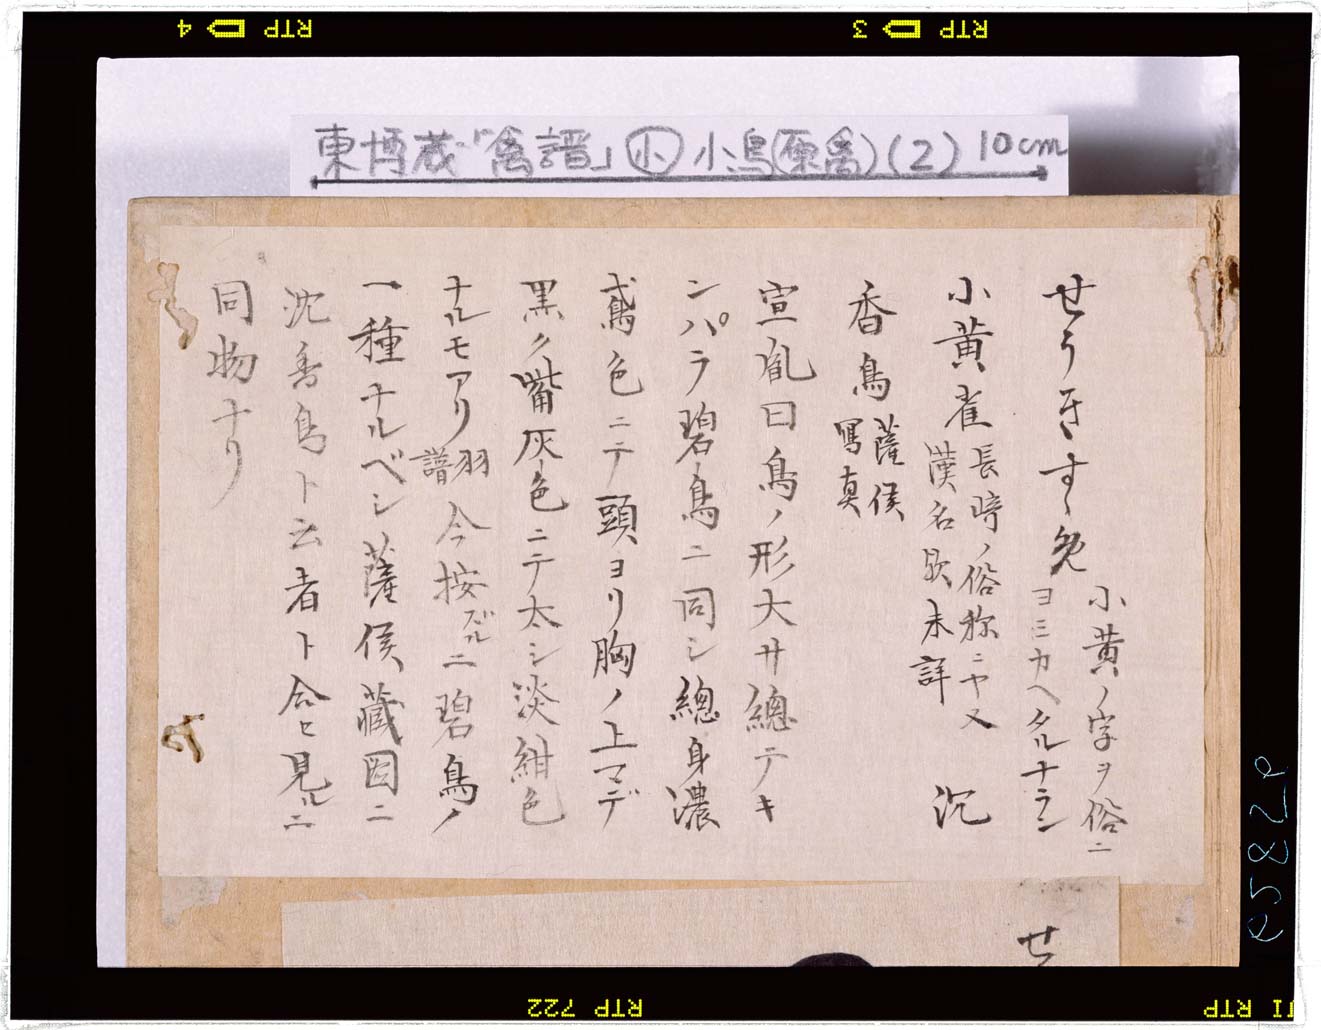 RTP 3
RTP 4
東博蔵「禽譜」小 小鳥(原禽)(2) 10cm
せうきすゝめ 小黄ノ字ヲ俗ニ
ヨミカヘタルナラン
小黄雀 長崎ノ俗称ニヤ又
漢名歟未詳 沉
香鳥 薩侯
写真
宣胤曰鳥ノ形大サ總テキ
ンパラ碧鳥ニ同シ總身濃
鳶色ニテ頭ヨリ胸ノ上マデ
黒ク嘴灰色ニテ太シ淡紺色
ナルモアリ 羽
譜 今按ズルニ碧鳥ノ
一種ナルベシ薩侯蔵図ニ
沈香鳥ト云者ト合セ見ルニ
同物ナリ
せ
RTP 722
RTP